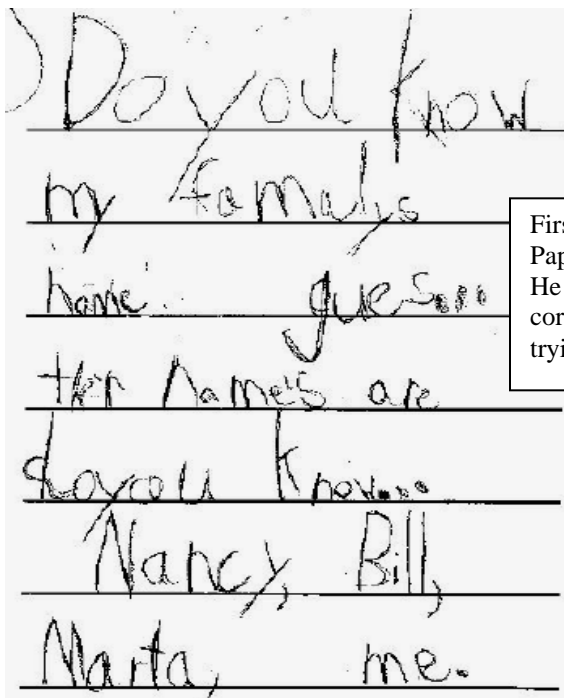 Do you know
my famalys
name. gues...
ther Name's are
do you know...
Nancy, Bill,
Marta, me.
Firs
Pap
He
cor
tryi